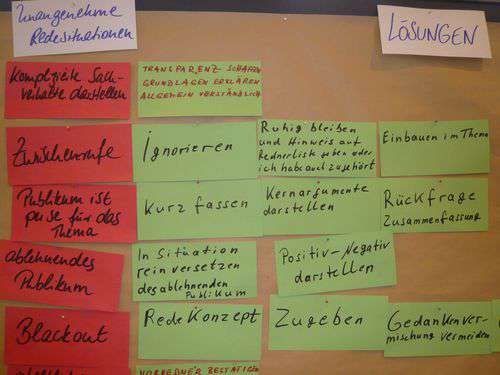 Unangenehme
Redesituationen
LÖSUNGEN
Komplizierte Sach-
verhalte darstellen
TRANSPARENZ SCHAFFEN
GRUNDLAGEN ERKLÄREN
ALLGEMEIN VERSTÄNDLICH
Zwischenrufe
Ignorieren
Ruhig bleiben
und Hinweis auf
Rednerliste geben oder
ich habe auch zugehört
Einbauen im Thema
Publikum ist
für das
Thema
Kurz fassen
Kernargumente
darstellen
Rückfrage
Zusammenfassung
ablehnendes
Publikum
In Situation
reinversetzen
des ablehnenden
Publikum
Positiv-Negativ
darstellen
Blackout
Rede Konzept
Zugeben
Gedankenver-
mischung vermeiden